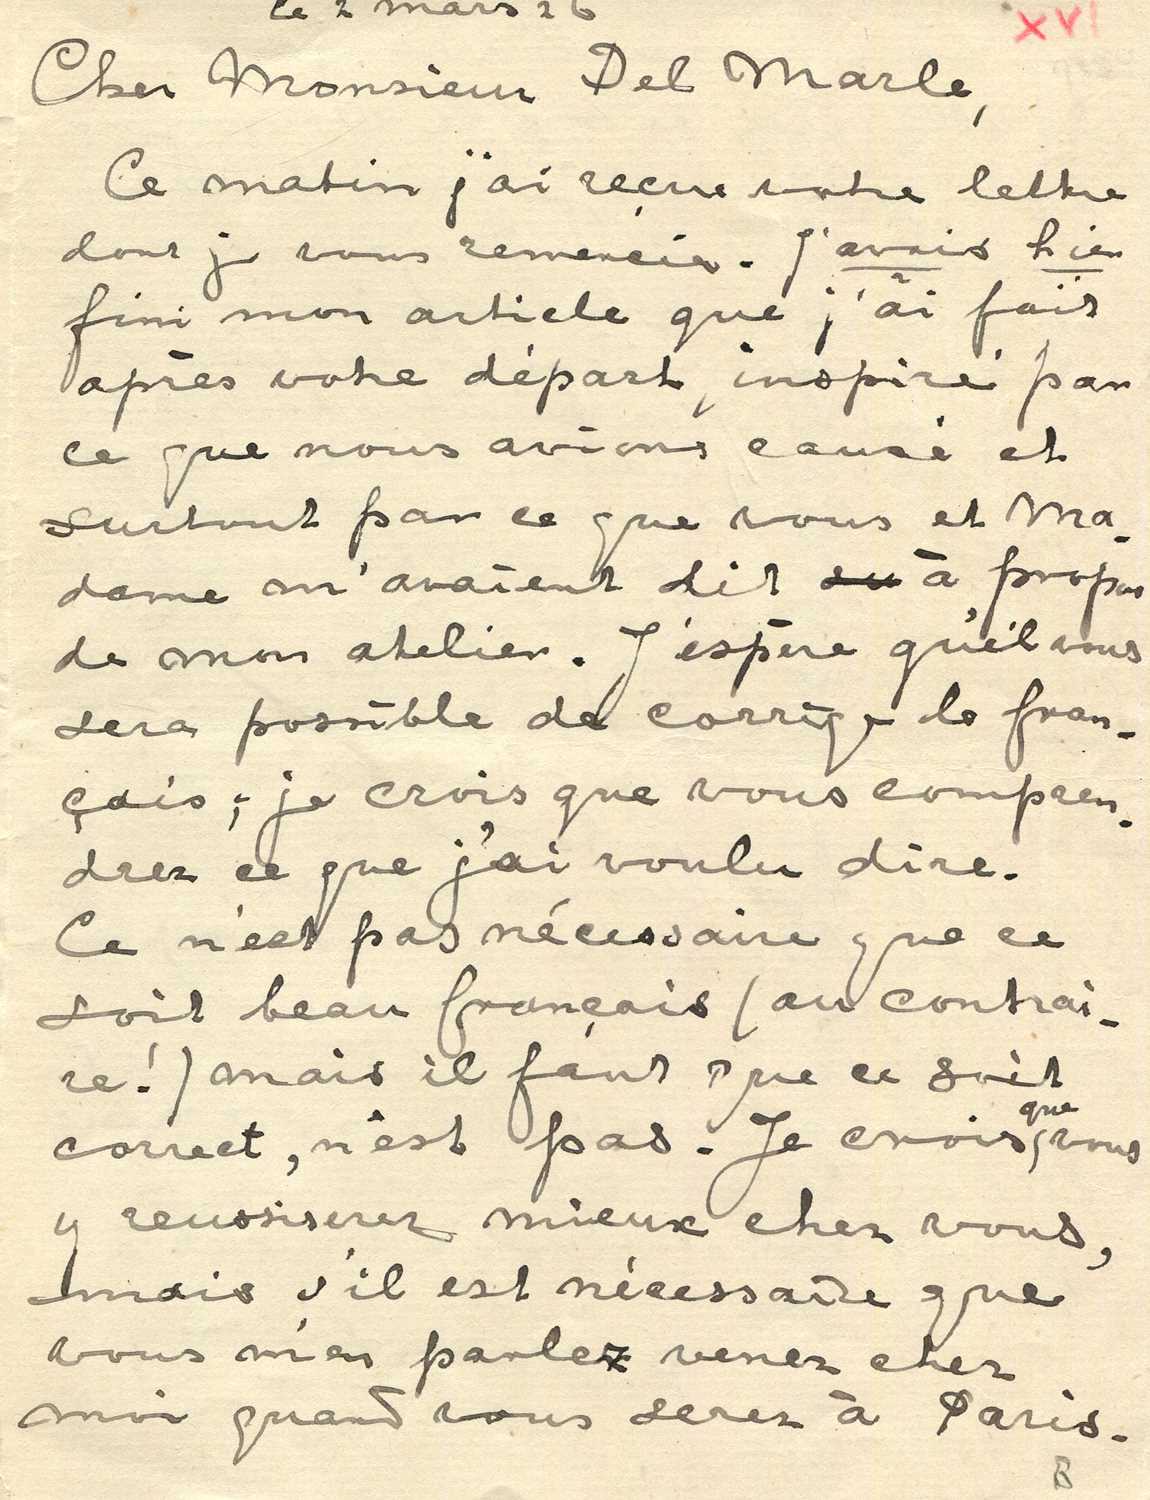 le 2 mars 26
XVI
Cher Monsieur Del Marle,
Ce matin j'ai reçue votre lettre
dont je vous remercie. J'avais hier
fini mon article que j'ai fait
après votre départ, inspiré par
ce que nous avions causé et
surtout par ce que vous et Ma-
dame m'avaient dit su à propos
de mon atelier. J'espère qu'il vous
sera possible de corriger le fran-
çais; je crois que vous compren-
drez ce que j'ai voulu dire.
Ce n'est pas nécessaire que ce
soit beau français (au contrai-
re!) mais il faut que ce soit
correct, n'est pas. Je crois, que vous
y reussiserez mieux chez vous,
mais s'il est nécessaire que
vous m'en parlez venez chez
moi quand vous serez à Paris.
B